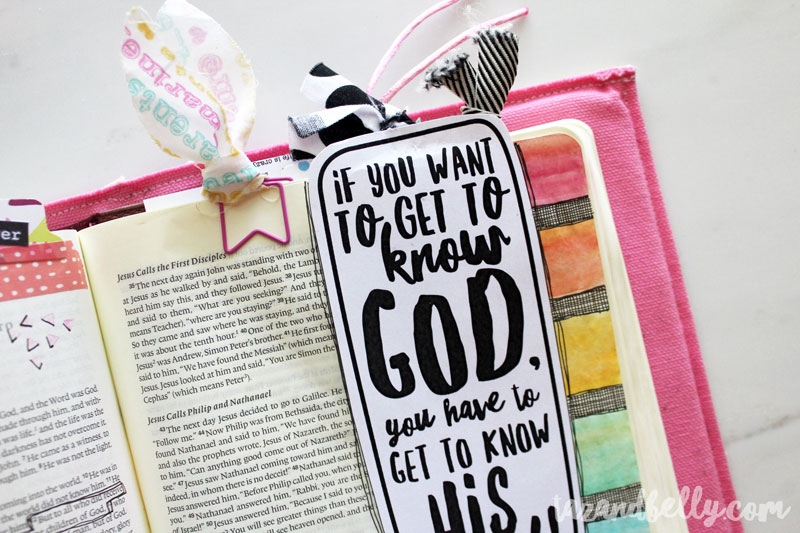 IF YOU WANT
TO GET TO
know
GOD,
you have to
GET TO KNOW
HIS
Jesus Calls the First Disciples
35 The next day again John was standing with two of
at Jesus as he walked by and said, "Behold, the Lamb
heard him say this, and they followed Jesus. 38 Jesus
and said to them, "What are you seeking?" And they
means Teacher), "where are you staying?" 39 He said to
So they came and saw where he was staying, and they
it was about the tenth hour. 40 One of the two who
Jesus was Andrew, Simon Peter's brother. 41 He first
said to him, "We have found the Messiah" (which mean
Jesus. Jesus looked at him and said, "You are Simon the
Cephas" (which means Peter).
Jesus Calls Philip and Nathanael
43 The next day Jesus decided to go to Galilee. He
"Follow me." 44 Now Philip was from Bethsaida, the city
found Nathanael and said to him, "We have found him
and also the prophets wrote, Jesus of Nazareth, the son
to him, "Can anything good come out of Nazareth?"
see." 47 Jesus saw Nathanael coming toward him and said
indeed, in whom there is no deceit!" 48 Nathanael said
Jesus answered him, "Before Philip called you, when you
you." 49 Nathanael answered him, "Rabbi, you are the
of Israel!" 50 Jesus answered him, "Because I said to you
You will see greater things than these
see heaven opened, and the
and the Word was God.
made through him, and with-
was life, and the life was the
darkness has not overcome it.
He came as a witness, to
He was not the light,
coming into the world. 10 He was in
the world did not know him. 11 He
But to all who did receive
children of God,
tazandbelly.com